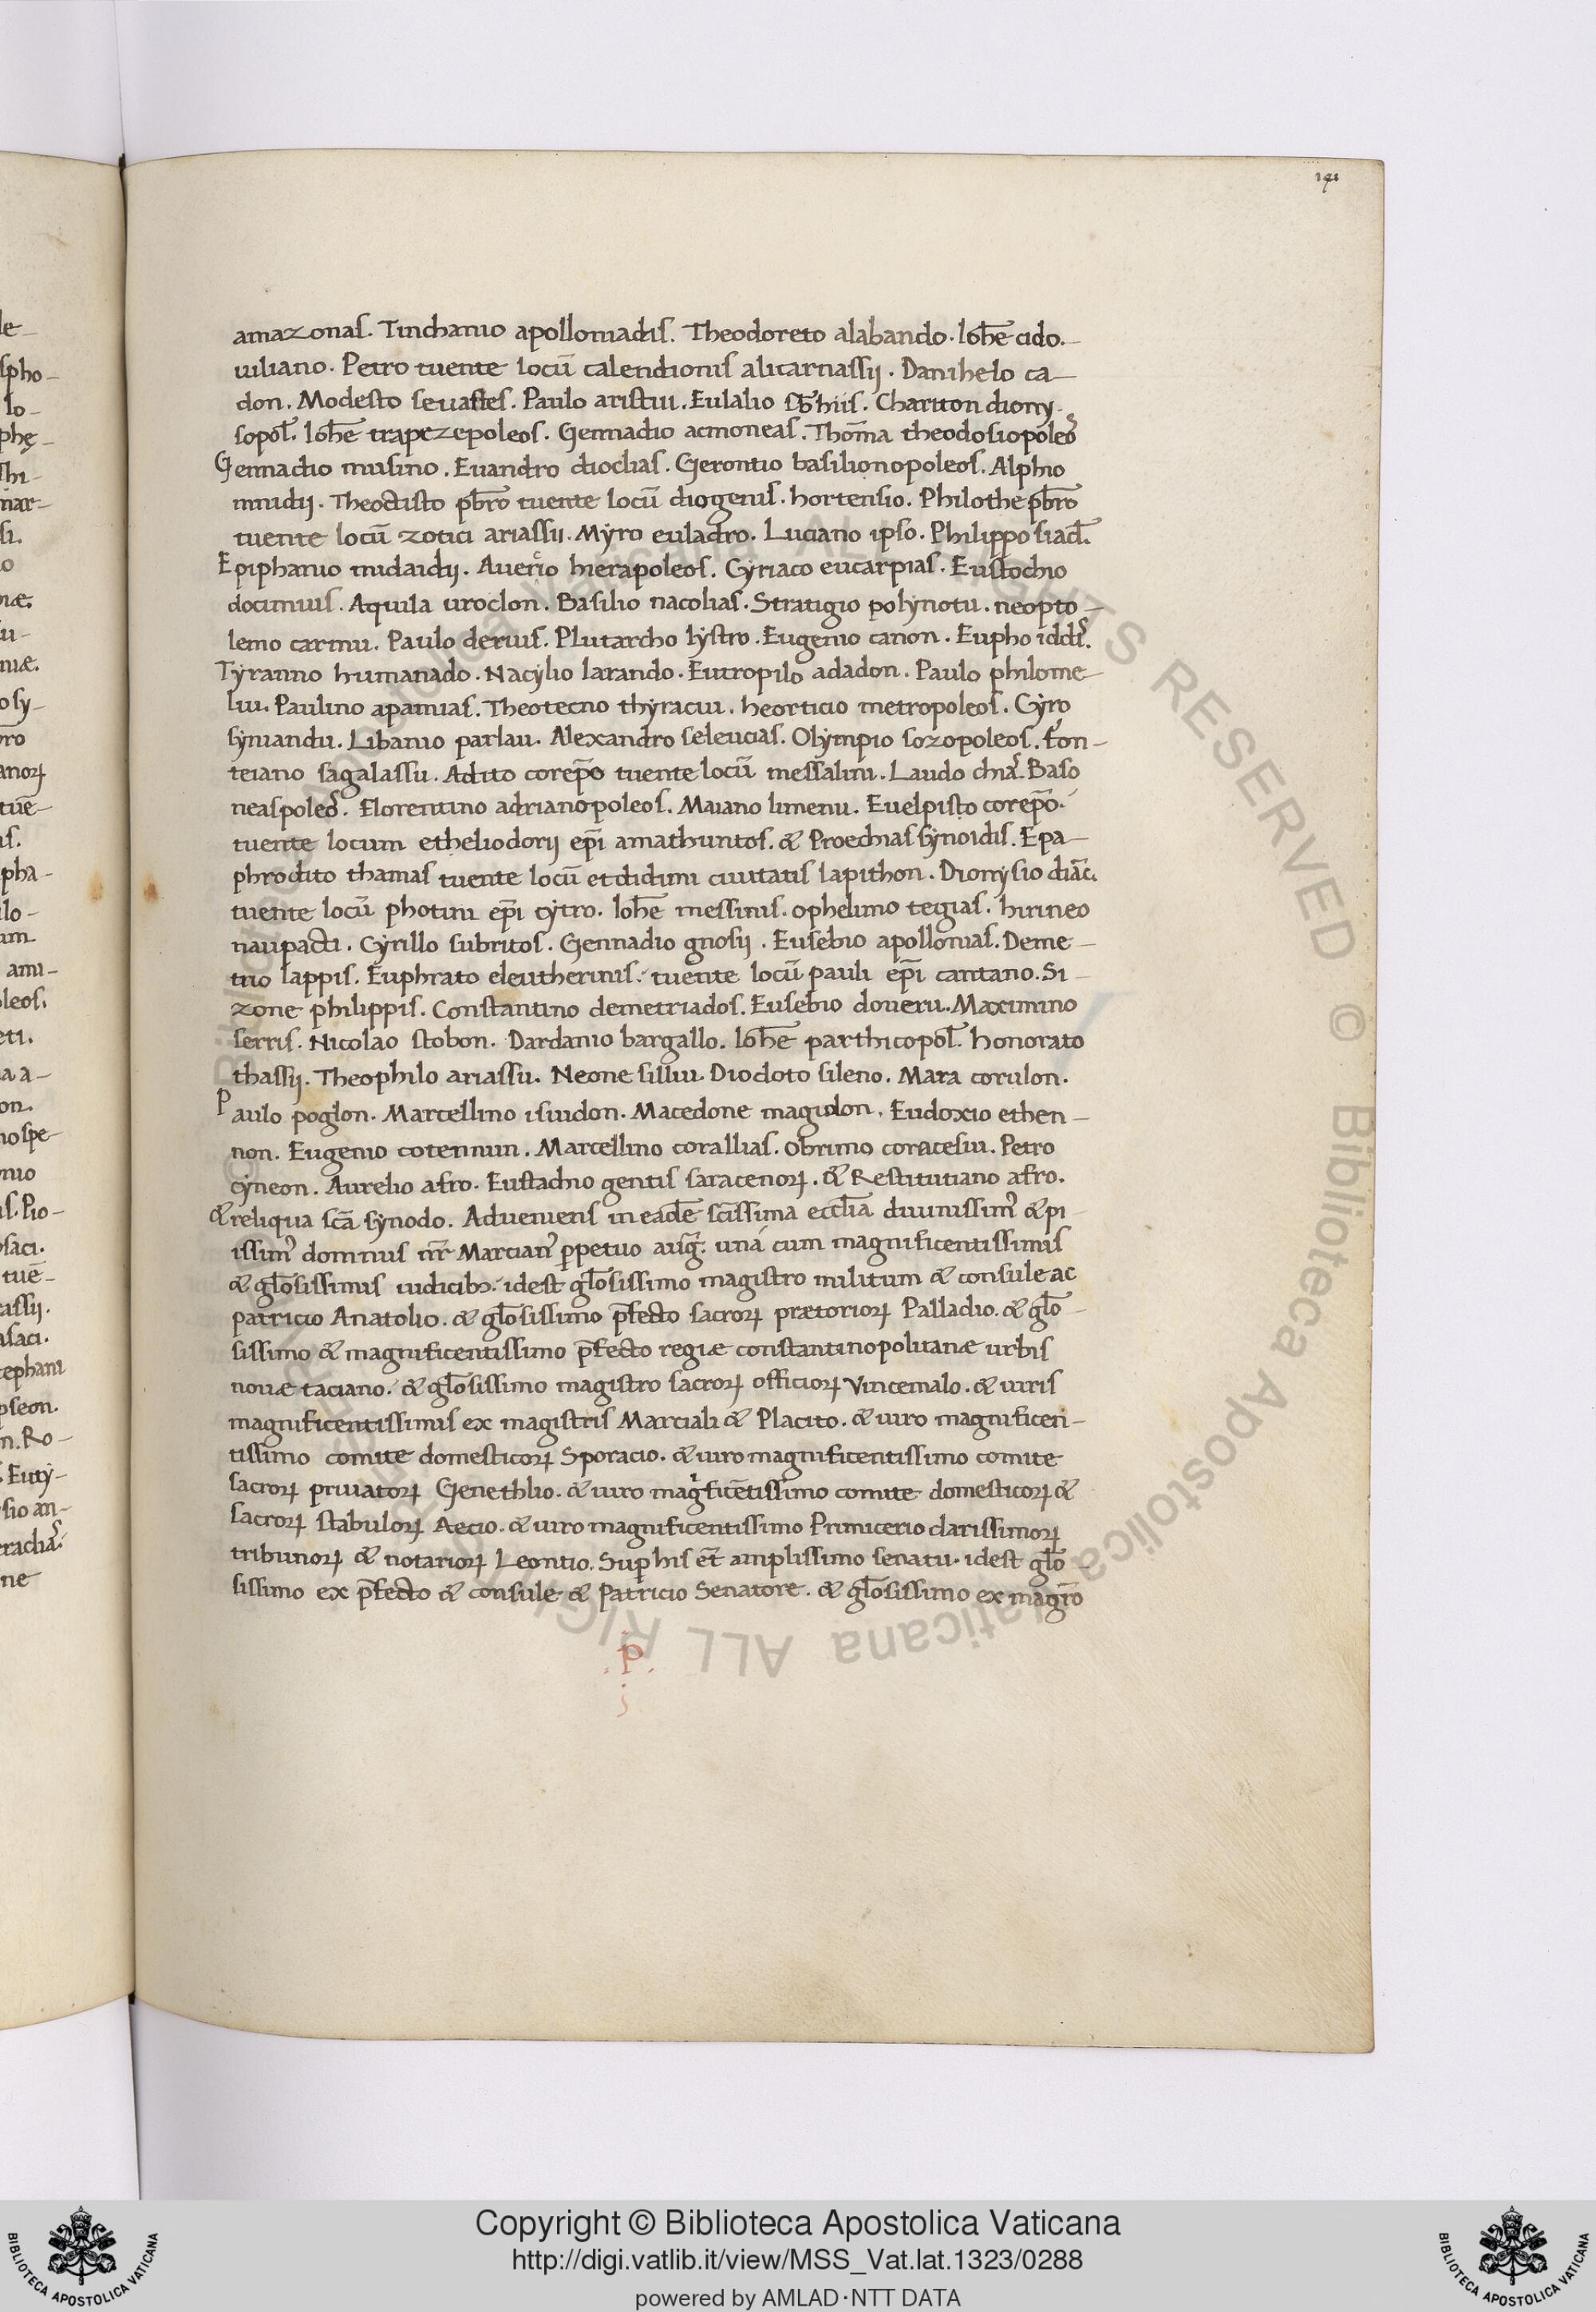 141
amazonas. Tinchanio apolloniadis. Theodoreto alabando. Ioh̄e cido.
uiliano. Petro tuente locū calendionis alicarnassij. Danihelo ca-
don. Modesto seuastes. Paulo aristiu. Eulalio sb̄hiis. Chariton diony-
sopol̄. Ioh̄e trapezepoleos. Gennadio acmoneas. Thom̄a theodosiopoleos
Gennadio musino. Euandro dioclias. Gerontio basilionopoleos. Alphio
mnidij. Theoctisto pb̄ro tuente locū diogenis. hortensio. Philothe pb̄ro
tuente locū zotici ariassii. Myro euladro. Luciano ipso. Philippo siad̄.
Epiphanio midaidij. Auercio hierapoleos. Cyriaco eucarpias. Eustochio
docimiis. Aquila uroclon. Basilio nacolias. Stratigio polynotu. neopto-
lemo carmu. Paulo deruis. Plutarcho lystro. Eugenio canon. Eupho iddis.
Tyranno humanado. Nacylio larando. Eutropilo adadon. Paulo philome-
liu. Paulino apamias. Theotecno thyraciu. heorticio metropoleos. Cyro
syniandu. Libanio parlau. Alexandro seleucias. Olympio sozopoleos. fon-
teiano sagalassu. Adito corep̄o tuente locū messalini. Laudo chia. Baso
neaspoleos. Florentino adrianopoleos. Maiano limenu. Euelpisto corep̄o.
tuente locum etheliodorij ep̄i amathuntos. & Proechias synoidis. Epa-
phrodito thamas tuente locū etdidimi ciuitatis lapithon. Dionysio diāc.
tuente locū photini ep̄i cytro. Ioh̄e messinis. ophelimo tegias. hirineo
naupacti. Cyrillo subritos. Gennadio gnosij. Eusebio apollonias. Deme-
trio lappis. Euphrato eleutherinis. tuente locū pauli ep̄i cantano. Si-
zone philippis. Constantino demetriados. Eusebio doueru. Maximino
serris. Nicolao stobon. Dardanio bargallo. Ioh̄e parthicopol̄. honorato
thassij. Theophilo ariassu. Neone silliu. Diodoto sileno. Mara corulon.
Paulo poglon. Marcellino isiudon. Macedone magidon. Eudoxio ethen-
non. Eugenio cotennun. Marcellino corallias. obrimo coracesiu. Petro
cyneon. Aurelio afro. Eustachio gentis saracenorꝝ. & Restitutiano afro.
& reliqua scā synodo. Adueniens in eadē scīssima eccl̄ia diuinissimꝰ & pi
issimꝰ dominus nr̄ Marcianꝰ ꝑpetuo auḡ. una cum magnificentissimis
& gl̄osissimis iudicibꝫ. idest gl̄osissimo magistro militum & consule ac
patricio Anatolio. & gl̄osissimo p̄fecto sacrorꝝ prætoriorꝝ Palladio. & gl̄o-
sissimo & magnificentissimo p̄fecto regiæ constantinopolitanæ urbis
nouæ taciano. & gl̄osissimo magistro sacrorꝝ officiorꝝ Vincemalo. & uiris
magnificentissimis ex magistris Marciali & Placito. & uiro magnificen-
tissimo comite domesticorꝝ Sporacio. & uiro magnificentissimo comite
sacrorꝝ priuatorꝝ Genethlio. & uiro magͥficētissimo comite domesticorꝝ &
sacrorꝝ stabulorꝝ Aecio. & uiro magnificentissimo Primicerio clarissimorꝝ
tribunorꝝ & notariorꝝ Leontio. Suꝑ his et̄ amplissimo senatu. idest gl̄o-
sissimo ex p̄fecto & consule & Patricio Senatore. & gl̄osissimo ex magr̄o
.p.
Copyright © Biblioteca Apostolica Vaticana
http://digi.vatlib.it/view/MSS_Vat.lat.1323/0288
powered by AMLAD·NTT DATA